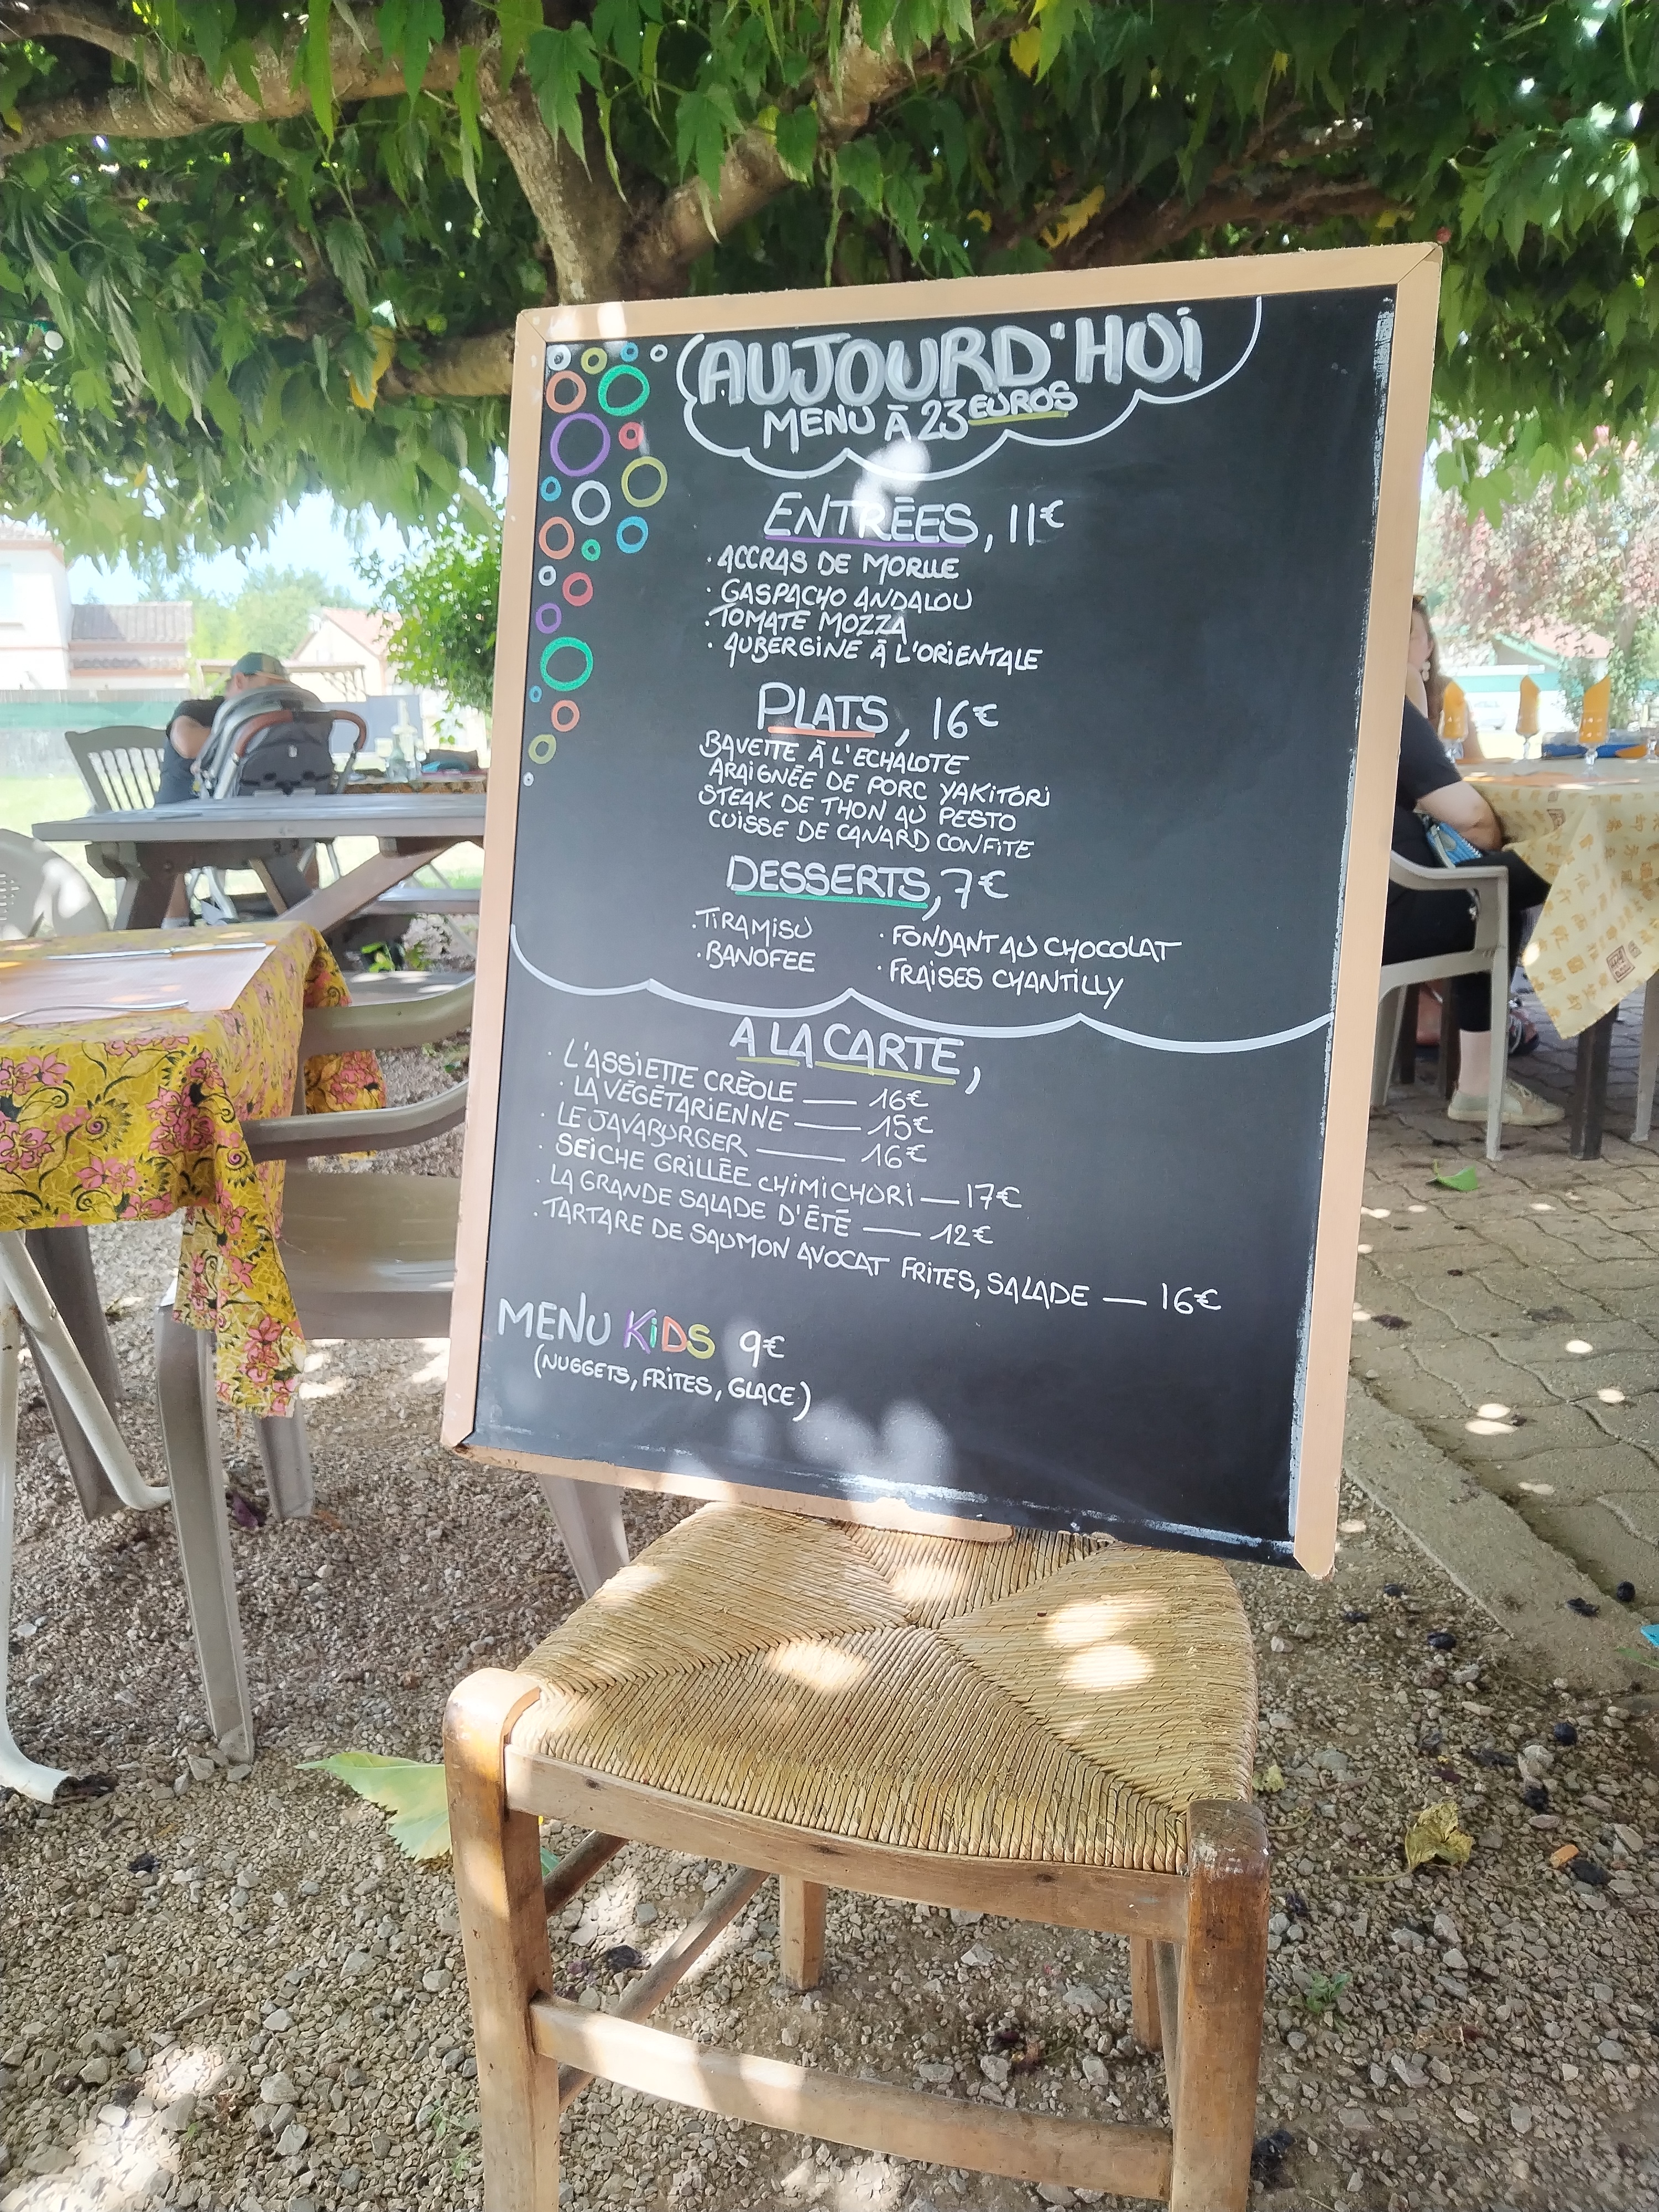 AUJOURD'HUI
MENU À 23 EUROS
ENTRÉES, 11€
· ACCRAS DE MORUE
· GASPACHO ANDALOU
· TOMATE MOZZA
· AUBERGINE À L'ORIENTALE
PLATS, 16€
BAVETTE À L'ECHALOTE
ARAIGNÉE DE PORC YAKITORI
STEAK DE THON AU PESTO
CUISSE DE CANARD CONFITE
DESSERTS, 7€
· TIRAMISU · FONDANT AU CHOCOLAT
· BANOFEE · FRAISES CHANTILLY
A LA CARTE,
· L'ASSIETTE CRÉOLE — 16€
· LA VÉGÉTARIENNE — 15€
· LE JAVABURGER — 16€
· SEICHE GRILLÉE CHIMICHURI — 17€
· LA GRANDE SALADE D'ÉTÉ — 12€
· TARTARE DE SAUMON AVOCAT FRITES, SALADE — 16€
MENU KIDS 9€
(NUGGETS, FRITES, GLACE)